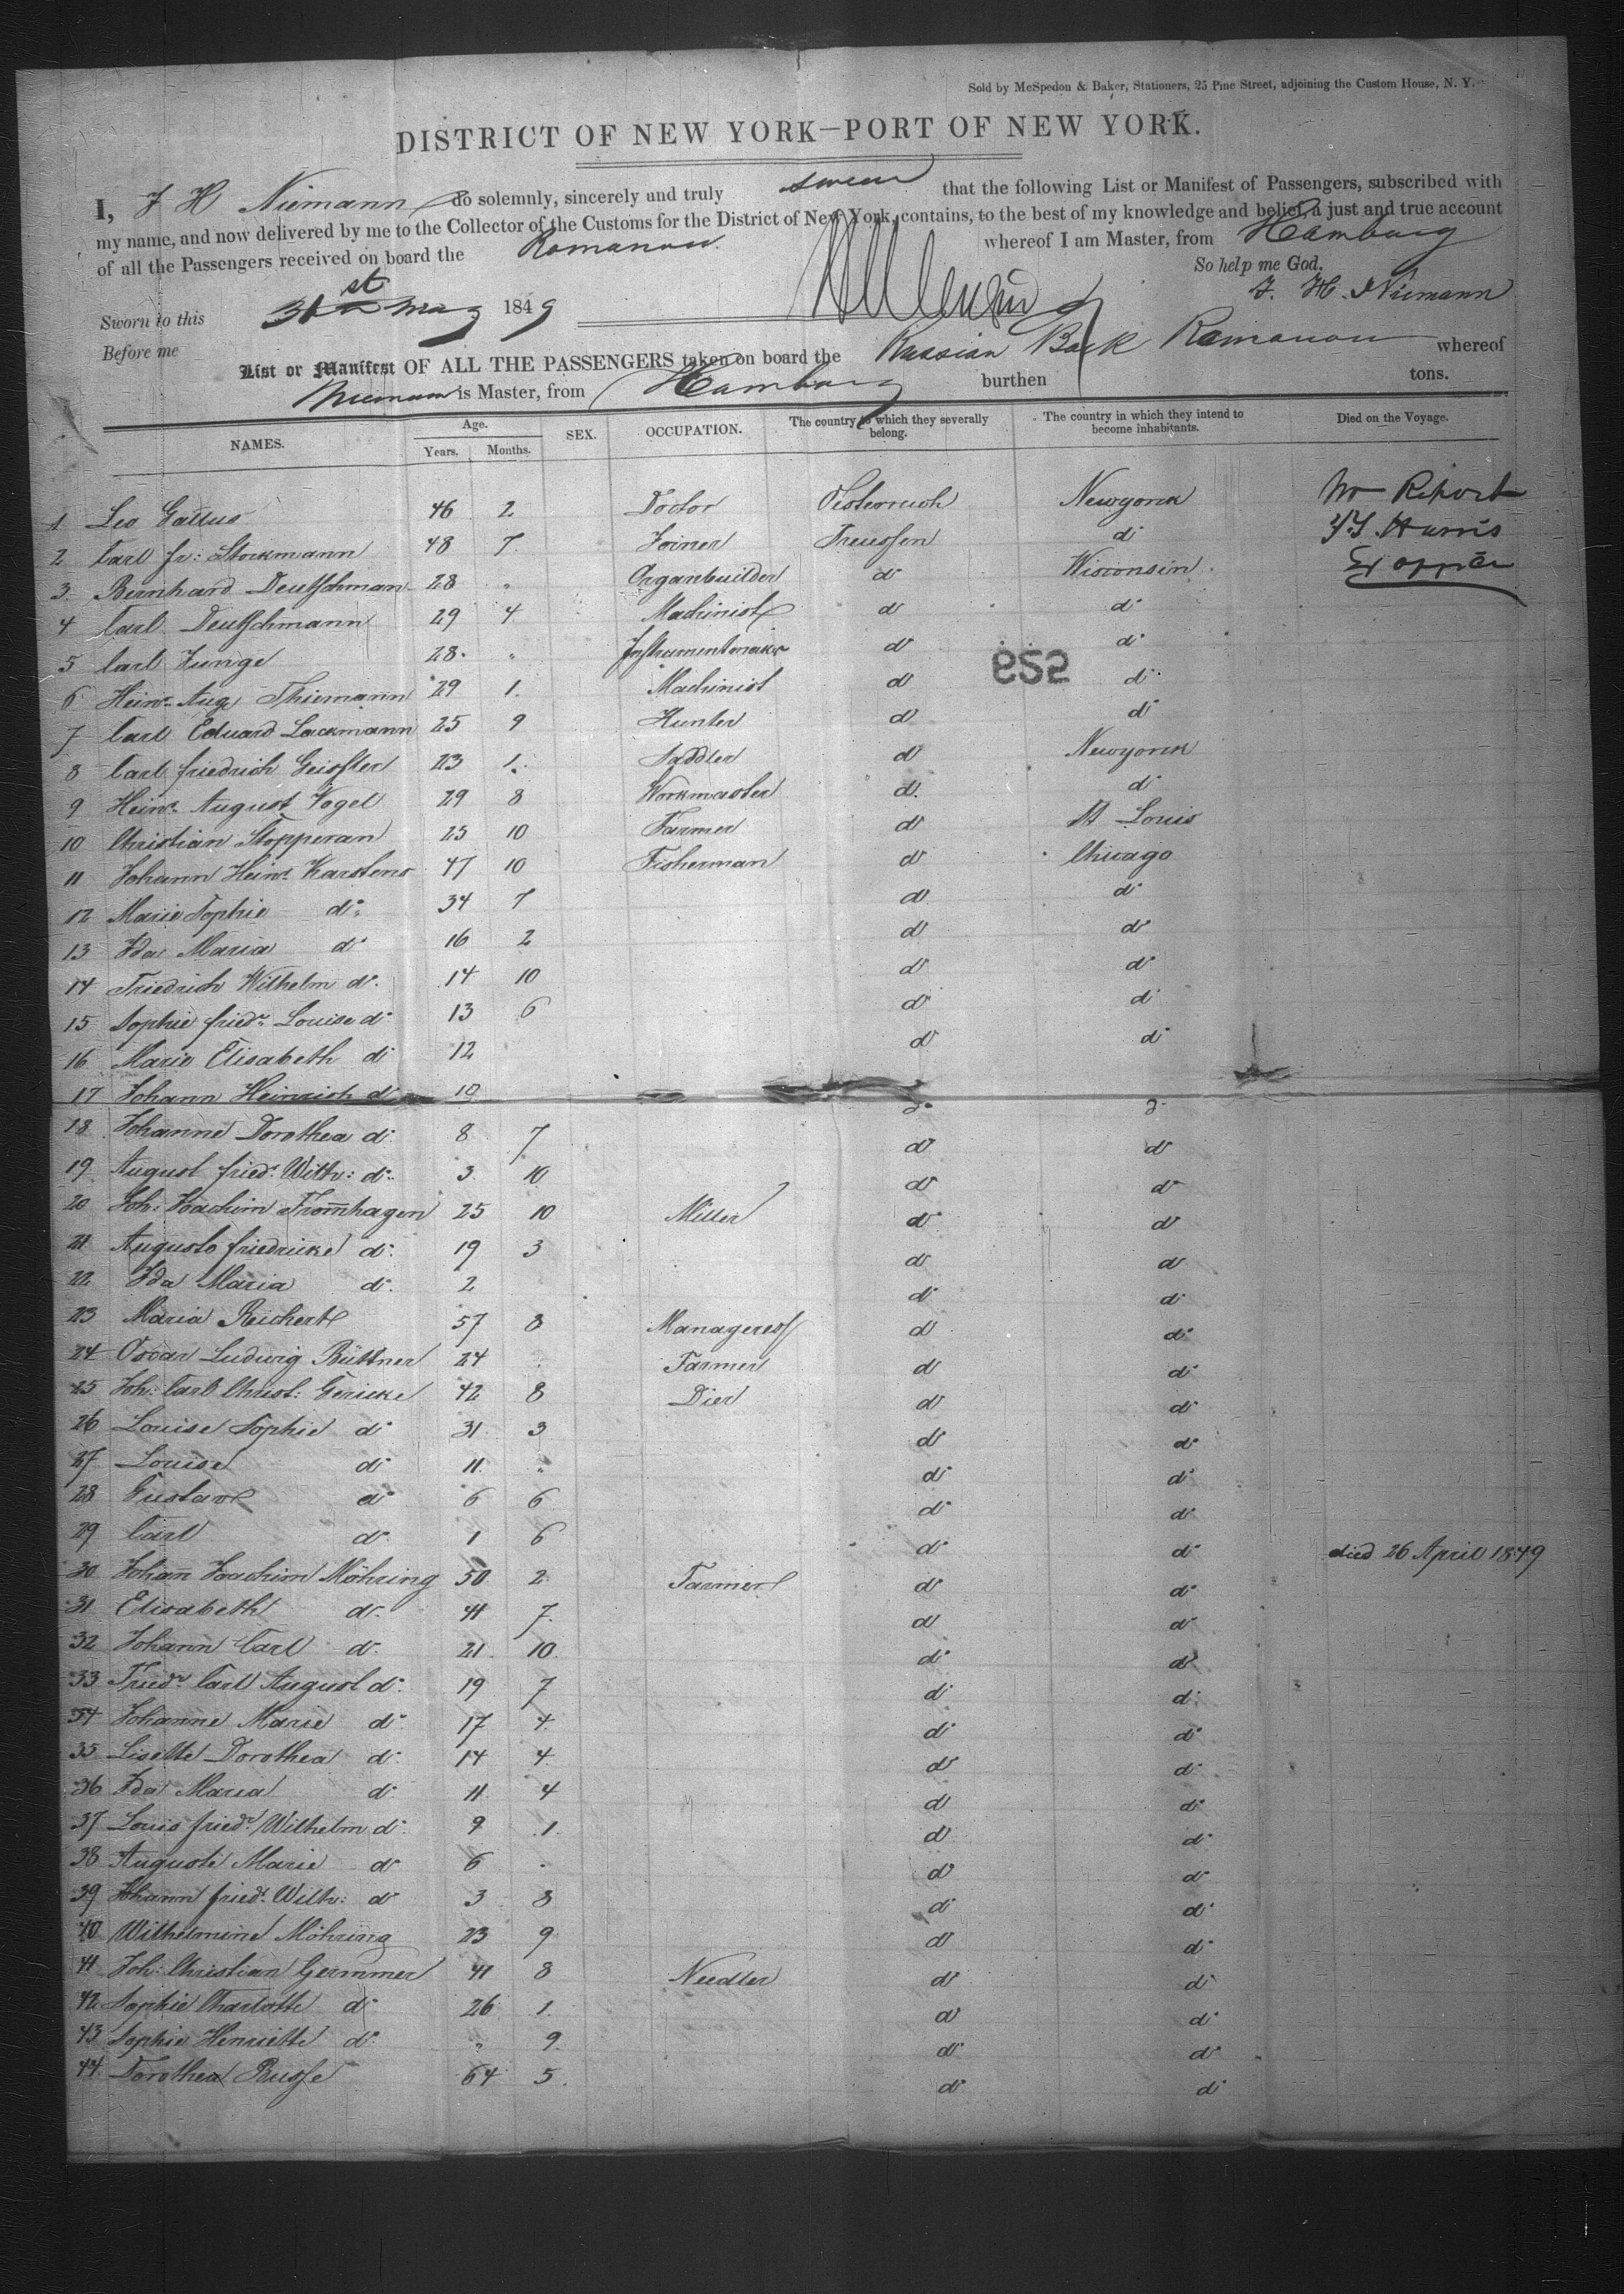 Sold by McSpedon & Baker, Stationers, 25 Pine Street, adjoining the Custom House, N. Y.
DISTRICT OF NEW YORK—PORT OF NEW YORK.
I, J H Niemann do solemnly, sincerely and truly swear that the following List or Manifest of Passengers, subscribed with
my name, and now delivered by me to the Collector of the Customs for the District of New York, contains, to the best of my knowledge and belief, a just and true account
of all the Passengers received on board the Romanow whereof I am Master, from Hamburg
So help me God.
Sworn to this 31st May 1849 J. H. Niemann
Before me
List or Manifest OF ALL THE PASSENGERS taken on board the Russian Bark Romanow whereof
Niemann is Master, from Hamburg burthen tons.
NAMES. Age. Years. Months. SEX. OCCUPATION. The country to which they severally belong. The country in which they intend to become inhabitants. Died on the Voyage.
1 Leo Gallus 46 2 Doctor Oesterreich Newyorck No Report
2 Carl fr: Storkmann 48 7 Joiner Preussen do Harris
3 Bernhard Deutschman 28 " Organbuilder do Wisconsin
4 Carl Deutschmann 29 4 Machinist do do
5 Carl Junge 28 " Instrumentmaker do do
6 Heinr. Aug Thiemann 29 1 Machinist do do
7 Carl Eduard Lackmann 25 9 Hunter do do
8 Carl friedrich Geissler 23 1 Saddler do Newyorck
9 Heinr. August Vogel 29 8 Workmaster do do
10 Christian Stopperan 23 10 Farmer do St Louis
11 Johann Heinr. Karstens 47 10 Fisherman do Chicago
12 Marie Sophie do 34 7 do do
13 Ida Maria do 16 2 do do
14 Friedrich Wilhelm do 14 10 do do
15 Sophie friedr. Louise do 13 6 do do
16 Marie Elisabeth do 12 do do
17 Johann Heinrich do 10 do do
18 Johanne Dorothea do 8 7 do do
19 August friedr. Wilh: do 3 10 do do
20 Joh: Joachim Frommhagen 25 10 Miller do do
21 Auguste friedricke do 19 3 do do
22 Ida Maria do 2 do do
23 Maria Reichert 57 8 Manageress do do
24 Oscar Ludwig Büttner 24 Farmer do do
25 Joh: Carl Christ: Gericke 42 8 Dier do do
26 Louise Sophie do 31 3 do do
27 Louise do 11 " do do
28 Gustav do 6 6 do do
29 Carl do 1 6 do do died 26 April 1849
30 Johann Joachim Möhring 50 2 Farmer do do
31 Elisabeth do 41 7 do do
32 Johann Carl do 21 10 do do
33 Friedr. Carl August do 19 7 do do
34 Johanne Marie do 17 4 do do
35 Lisette Dorothea do 14 4 do do
36 Ida Maria do 11 4 do do
37 Louis friedr. Wilhelm do 9 1 do do
38 Auguste Marie do 6 do do
39 Johann friedr. Wilh: do 3 8 do do
40 Wilhelmine Möhring 23 9 do do
41 Joh: Christian Germmer 41 8 Needler do do
42 Sophie Charlotte do 26 1 do do
43 Sophie Henriette do " 9 do do
44 Dorothea Busse 64 5 do do